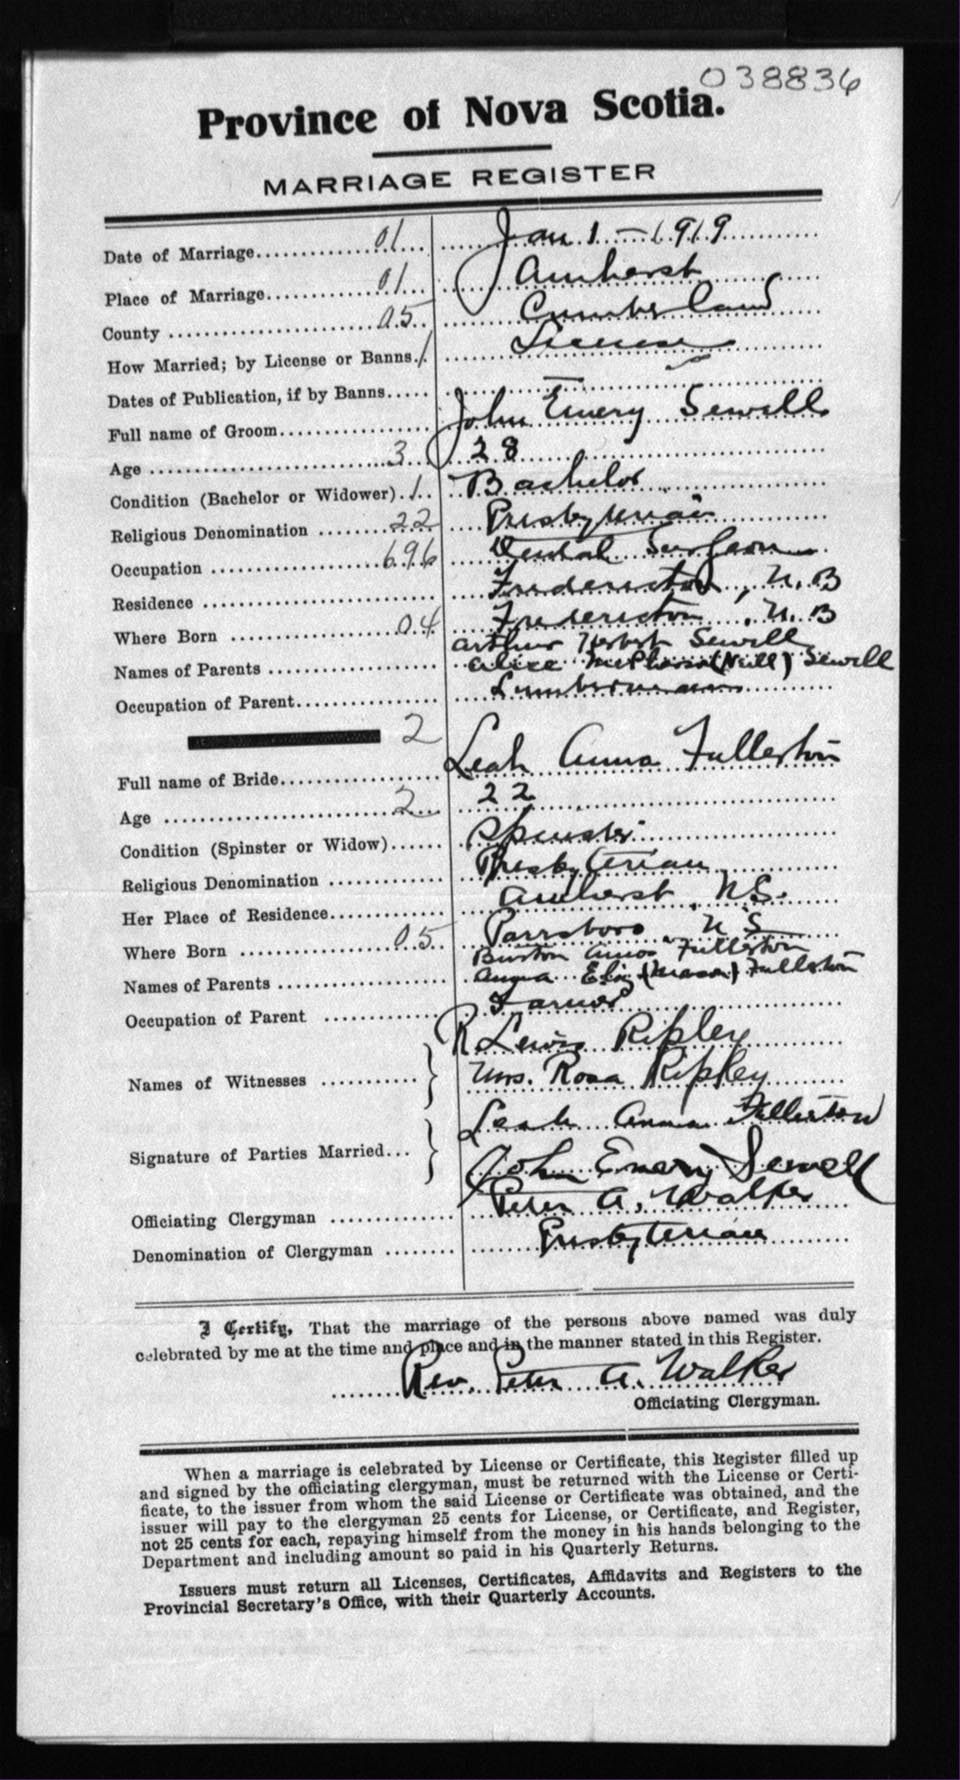 038836
Province of Nova Scotia.
MARRIAGE REGISTER
Date of Marriage 01 Jan 1 - 1919
Place of Marriage 01 Amherst
County 05 Cumberland
How Married; by License or Banns 1 License
Dates of Publication, if by Banns
Full name of Groom John Emery Sewell
Age 3 28
Condition (Bachelor or Widower) 1 Bachelor
Religious Denomination 22 Presbyterian
Occupation 696 Dental Surgeon
Residence Fredericton, N. B
Where Born 04 Fredericton, N. B
Names of Parents Arthur Herbert Sewell
Alice (Neill) Sewell
Occupation of Parent Lumberman
2
Full name of Bride Leah Anna Fullerton
Age 2 22
Condition (Spinster or Widow) Spinster
Religious Denomination Presbyterian
Her Place of Residence Amherst, N.S.
Where Born 05 Parrsboro, N.S
Names of Parents Burton Amos Fullerton
Eliz (Mason) Fullerton
Occupation of Parent Farmer
Names of Witnesses R Lewis Ripley
Mrs. Rosa Ripley
Signature of Parties Married Leah Anna Fullerton
John Emery Sewell
Officiating Clergyman Peter A. Walker
Denomination of Clergyman Presbyterian
I Certify, That the marriage of the persons above named was duly
celebrated by me at the time and place and in the manner stated in this Register.
Rev. Peter A. Walker
Officiating Clergyman.
When a marriage is celebrated by License or Certificate, this Register filled up
and signed by the officiating clergyman, must be returned with the License or Certi-
ficate, to the issuer from whom the said License or Certificate was obtained, and the
issuer will pay to the clergyman 25 cents for License, or Certificate, and Register,
not 25 cents for each, repaying himself from the money in his hands belonging to the
Department and including amount so paid in his Quarterly Returns.
Issuers must return all Licenses, Certificates, Affidavits and Registers to the
Provincial Secretary's Office, with their Quarterly Accounts.